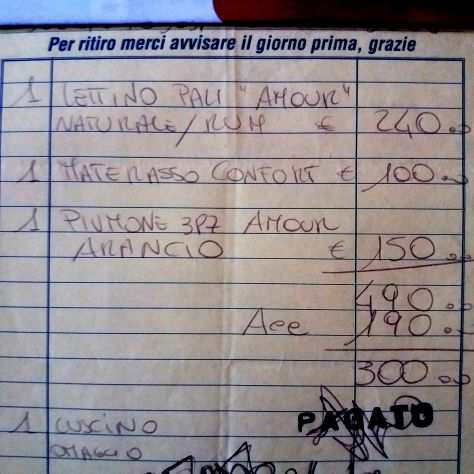 Per ritiro merci avvisare il giorno prima, grazie
1 LETTINO PALI "AMOUR"
NATURALE/RUM € 240.00
1 MATERASSO CONFORT € 100.00
1 PIUMONE 3PZ AMOUR
ARANCIO € 150.00
490.00
Acc 190.00
300.00
PAGATO
1 CUSCINO
OMAGGIO